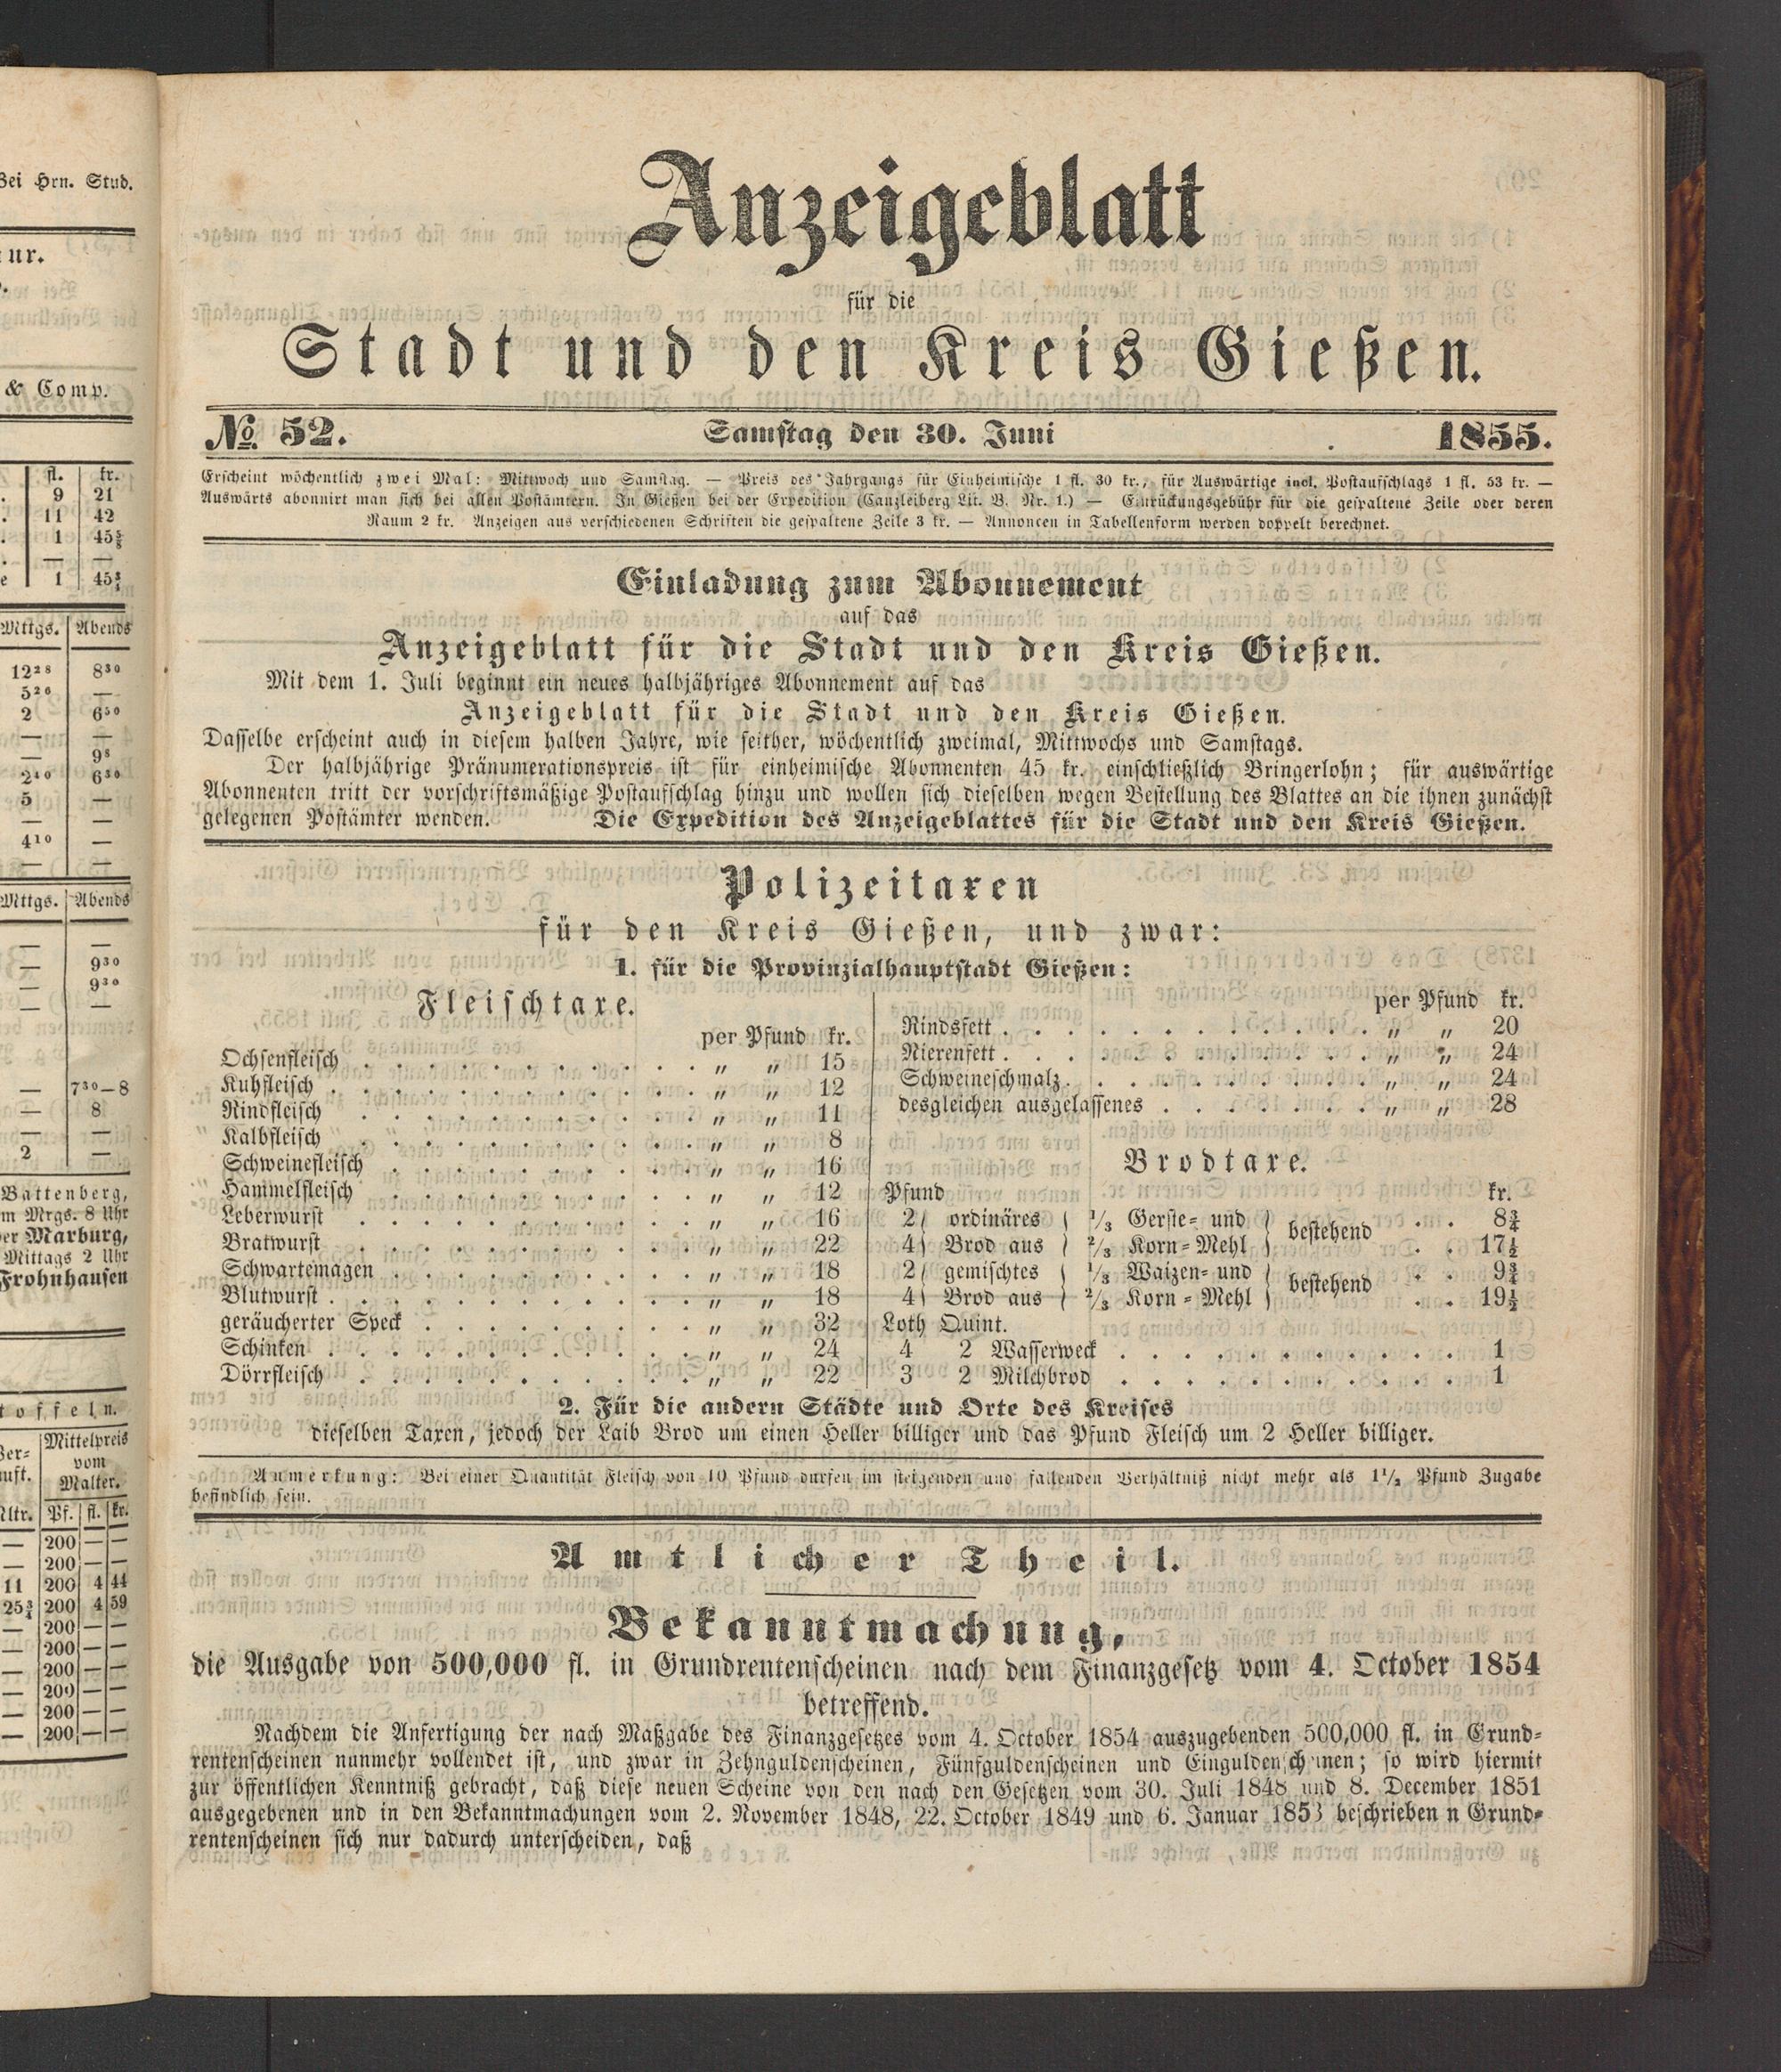 Bei Hrn. Stud.
& Comp.
fl. kr.
9 21
11 42
1 45⅝
— —
1 45¾
Mttgs. Abends
12²⁸ 8³⁰
5²⁶ —
2 6⁵⁰
— —
— 9⁸
2⁴⁰ 6³⁰
5 —
— —
4¹⁰ —
— —
Mttgs. Abends
— —
— 9³⁰
— 9³⁰
— —
— 7³⁰–8
— 8
— —
2 —
Battenberg,
Mrgs. 8 Uhr
Marburg,
Mittags 2 Uhr
Frohnhausen
Mittelpreis
vom
Malter.
Pf. fl. kr.
— 200 — —
— 200 — —
11 200 4 44
25¾ 200 4 59
— 200 — —
— 200 — —
— 200 — —
— 200 — —
— 200 — —
— 200 — —
Anzeigeblatt
für die
Stadt und den Kreis Gießen.
No. 52. Samstag den 30. Juni 1855.
Erscheint wöchentlich zwei Mal: Mittwoch und Samstag. — Preis des Jahrgangs für Einheimische 1 fl. 30 kr., für Auswärtige incl. Postaufschlags 1 fl. 53 kr. —
Auswärts abonnirt man sich bei allen Postämtern. In Gießen bei der Expedition (Canzleiberg Lit. B. Nr. 1.) — Einrückungsgebühr für die gespaltene Zeile oder deren
Raum 2 kr. Anzeigen aus verschiedenen Schriften die gespaltene Zeile 3 kr. — Annoncen in Tabellenform werden doppelt berechnet.
Einladung zum Abonnement
auf das
Anzeigeblatt für die Stadt und den Kreis Gießen.
Mit dem 1. Juli beginnt ein neues halbjähriges Abonnement auf das
Anzeigeblatt für die Stadt und den Kreis Gießen.
Dasselbe erscheint auch in diesem halben Jahre, wie seither, wöchentlich zweimal, Mittwochs und Samstags.
Der halbjährige Pränumerationspreis ist für einheimische Abonnenten 45 kr. einschließlich Bringerlohn; für auswärtige
Abonnenten tritt der vorschriftsmäßige Postaufschlag hinzu und wollen sich dieselben wegen Bestellung des Blattes an die ihnen zunächst
gelegenen Postämter wenden. Die Expedition des Anzeigeblattes für die Stadt und den Kreis Gießen.
Polizeitaxen
für den Kreis Gießen, und zwar:
1. für die Provinzialhauptstadt Gießen:
Fleischtaxe.
per Pfund kr.
Ochsenfleisch . . . „ „ 15
Kuhfleisch . . . „ „ 12
Rindfleisch . . . „ „ 11
Kalbfleisch . . . „ „ 8
Schweinefleisch . . . „ „ 16
Hammelfleisch . . . „ „ 12
Leberwurst . . . „ „ 16
Bratwurst . . . „ „ 22
Schwartemagen . . . „ „ 18
Blutwurst . . . „ „ 18
geräucherter Speck . . . „ „ 32
Schinken . . . „ „ 24
Dörrfleisch . . . „ „ 22
per Pfund kr.
Rindsfett . . . „ „ 20
Nierenfett . . . „ „ 24
Schweineschmalz . . . „ „ 24
desgleichen ausgelassenes . . . „ „ 28
Brodtaxe.
Pfund kr.
2 } ordinäres { ⅓ Gerste- und } bestehend . . 8¾
4 } Brod aus { ⅔ Korn-Mehl } . . 17½
2 } gemischtes { ⅓ Waizen- und } bestehend . . 9¾
4 } Brod aus { ⅔ Korn-Mehl } . . 19½
Loth Quint.
4 2 Wasserweck . . . 1
3 2 Milchbrod . . . 1
2. Für die andern Städte und Orte des Kreises
dieselben Taxen, jedoch der Laib Brod um einen Heller billiger und das Pfund Fleisch um 2 Heller billiger.
Anmerkung: Bei einer Quantität Fleisch von 10 Pfund dürfen im steigenden und fallenden Verhältniß nicht mehr als 1½ Pfund Zugabe
befindlich sein.
Amtlicher Theil.
Bekanntmachung,
die Ausgabe von 500,000 fl. in Grundrentenscheinen nach dem Finanzgesetz vom 4. October 1854
betreffend.
Nachdem die Anfertigung der nach Maßgabe des Finanzgesetzes vom 4. October 1854 auszugebenden 500,000 fl. in Grund-
rentenscheinen nunmehr vollendet ist, und zwar in Zehnguldenscheinen, Fünfguldenscheinen und Einguldenscheinen; so wird hiermit
zur öffentlichen Kenntniß gebracht, daß diese neuen Scheine von den nach den Gesetzen vom 30. Juli 1848 und 8. December 1851
ausgegebenen und in den Bekanntmachungen vom 2. November 1848, 22. October 1849 und 6. Januar 1853 beschriebenen Grund-
rentenscheinen sich nur dadurch unterscheiden, daß